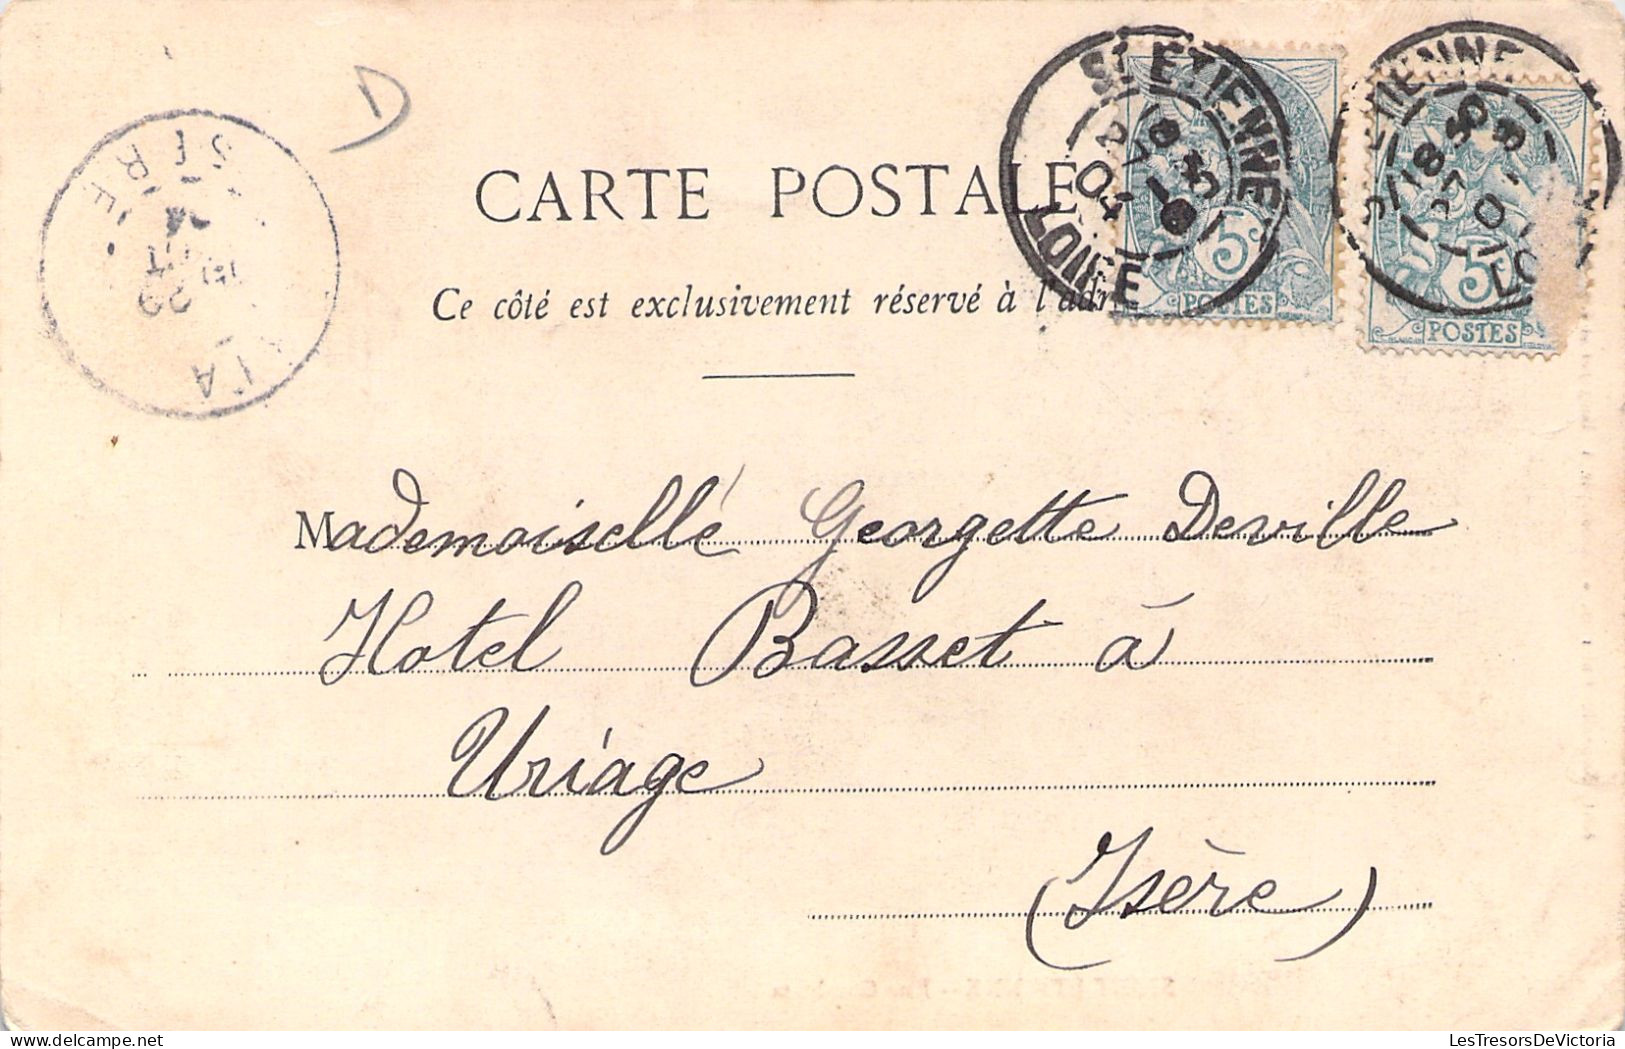 D
CARTE POSTALE
Ce côté est exclusivement réservé à l'adr
ST ETIENNE
LOIRE
ETIENNE
5c
POSTES
5c
POSTES
Mademoisellé Georgette Deville
Hotel Basset à
Uriage
(Isère)
LesTresorsDeVictoria